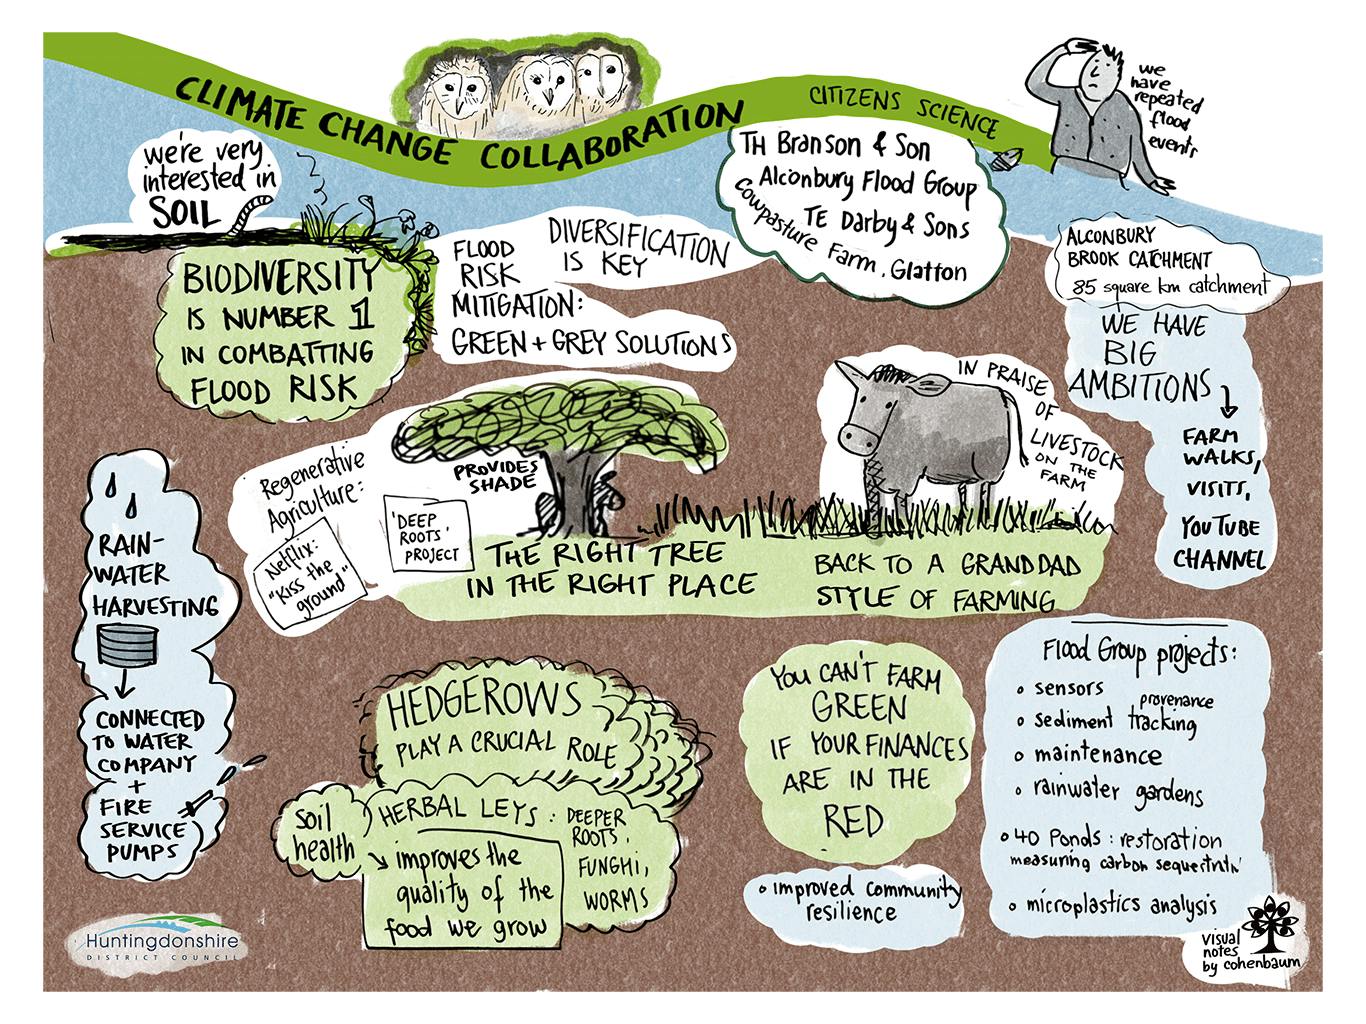 CLIMATE CHANGE COLLABORATION
CITIZENS SCIENCE
we
have
repeated
flood
events
we're very
interested in
SOIL
TH Branson & Son
Alconbury Flood Group
TE Darby & Sons
Cowpasture Farm, Glatton
BIODIVERSITY
IS NUMBER 1
IN COMBATTING
FLOOD RISK
FLOOD
RISK
MITIGATION:
GREEN + GREY SOLUTIONS
DIVERSIFICATION
IS KEY
ALCONBURY
BROOK CATCHMENT
85 square km catchment
WE HAVE
BIG
AMBITIONS
FARM
WALKS,
VISITS,
YOUTUBE
CHANNEL
IN PRAISE
OF
LIVESTOCK
ON THE
FARM
Regenerative
Agriculture:
Netflix:
"Kiss the
ground"
'DEEP
ROOTS'
PROJECT
PROVIDES
SHADE
THE RIGHT TREE
IN THE RIGHT PLACE
BACK TO A GRANDDAD
STYLE OF FARMING
RAIN-
WATER
HARVESTING
CONNECTED
TO WATER
COMPANY
+
FIRE
SERVICE
PUMPS
HEDGEROWS
PLAY A CRUCIAL ROLE
Soil
health
HERBAL LEYS:
improves the
quality of the
food we grow
DEEPER
ROOTS,
FUNGHI,
WORMS
YOU CAN'T FARM
GREEN
IF YOUR FINANCES
ARE IN THE
RED
• improved community
resilience
Flood Group projects:
• sensors
• sediment provenance tracking
• maintenance
• rainwater gardens
• 40 Ponds: restoration
measuring carbon
• microplastics analysis
Huntingdonshire
DISTRICT COUNCIL
visual
notes
by cohenbaum